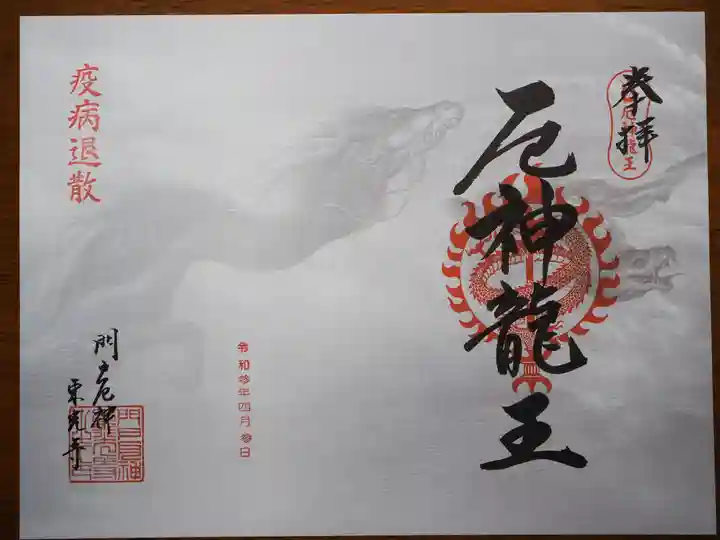 奉拝
厄神龍王
厄神龍王
令和参年四月参日
疫病退散
門戸厄神
東光寺